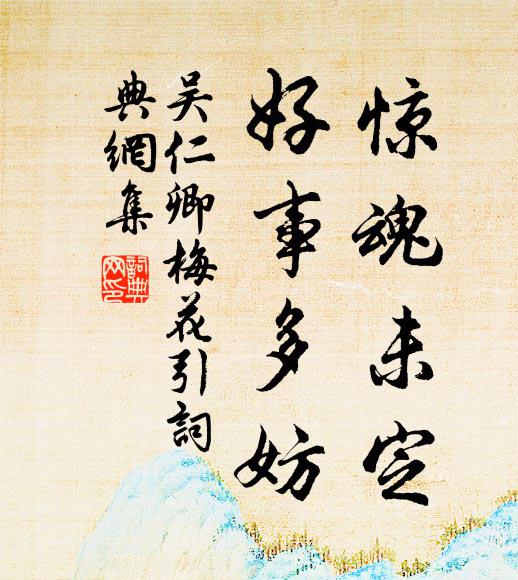 惊魂未定
好事多妨
吴仁卿梅花引詞
典網集
詞典网印